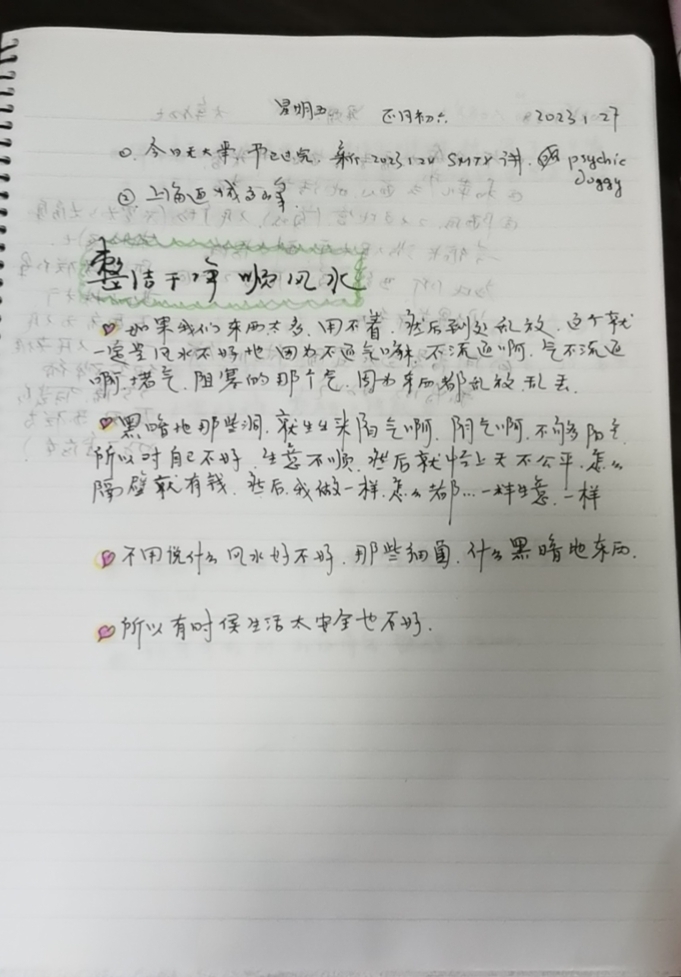 星期五 正月初六 2023.1.27
①. 今日无大事 节已过完, 2023.1.24 SMTV 讲. psychic doggy
② 上海
整洁干净顺风水
如果我们东西太多, 用不着, 然后到处乱放, 这个就
一定是风水不好地 因为不通气嘛, 不流通啊, 气不流通
啊, 堵气, 阻塞的那个气, 因为东西都乱放, 乱丢.
黑暗地那些洞, 就生出来阴气啊, 阴气啊, 不够阳气,
所以对自己不好, 生意不顺, 然后就怪上天不公平, 怎么
隔壁就有钱, 然后, 我做一样, 怎么都… 一样生意, 一样
不用说什么风水好不好, 那些细菌, 什么黑暗地东西.
所以有时侯生活太安全也不好.